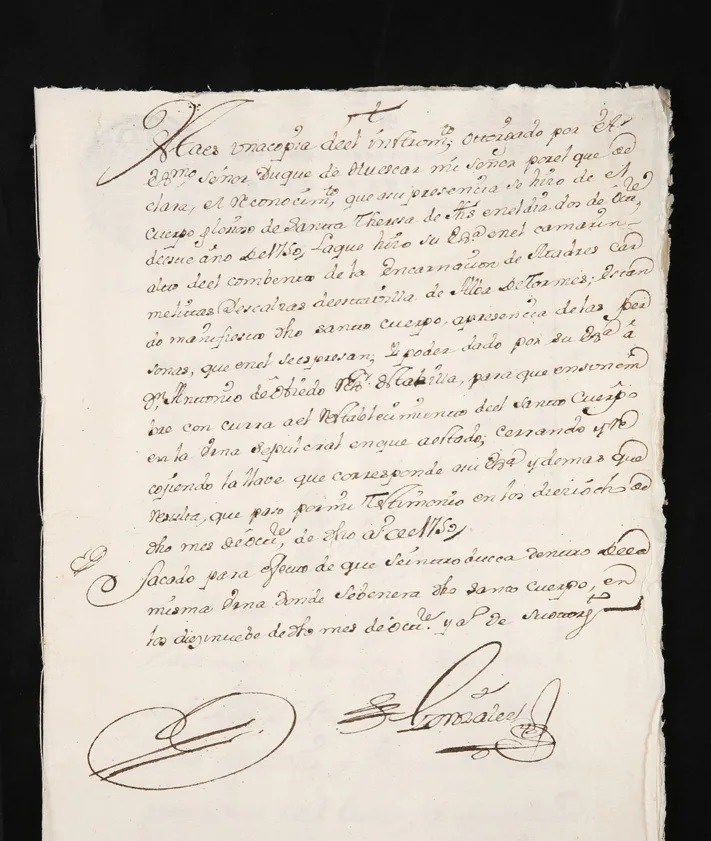 Es una copia deel instromto, otorgado por el
Exmo Señor Duque de Huescar mi señor por el que de
clara, el Reconocimto, que a su presencia se hizo de el
cuerpo glorioso de Santa Theresa de Jhs en el dia dos de Octre
de este año de 1750, la que hizo su Exa en el camarin
alto deel combento de la Encarnacion de Madres Car
melitas Descalzas de esta villa de Alba de Tormes; estan
do manifiesto dho santo cuerpo, a presencia de las per
sonas, que en el se espresan; Y poder dado por su Exa á
Dn Antonio de Oviedo para que en su nom
bre con curra a el Restablecimiento deel Santo Cuerpo
en la Urna Sepulcral en que a estado; cerrando y Re
cojiendo la llave que corresponde a su Exa y demas que
Resulta, que paso por mi Testimonio en los dieziocho de
dho mes de Octre, de dho aº de 1750,
Sacado para efecto de que se introduzca dentro de la
misma Urna donde se benera dho santo cuerpo, en
los diezinuebe de dho mes de Octre y aº de
Gonzalez